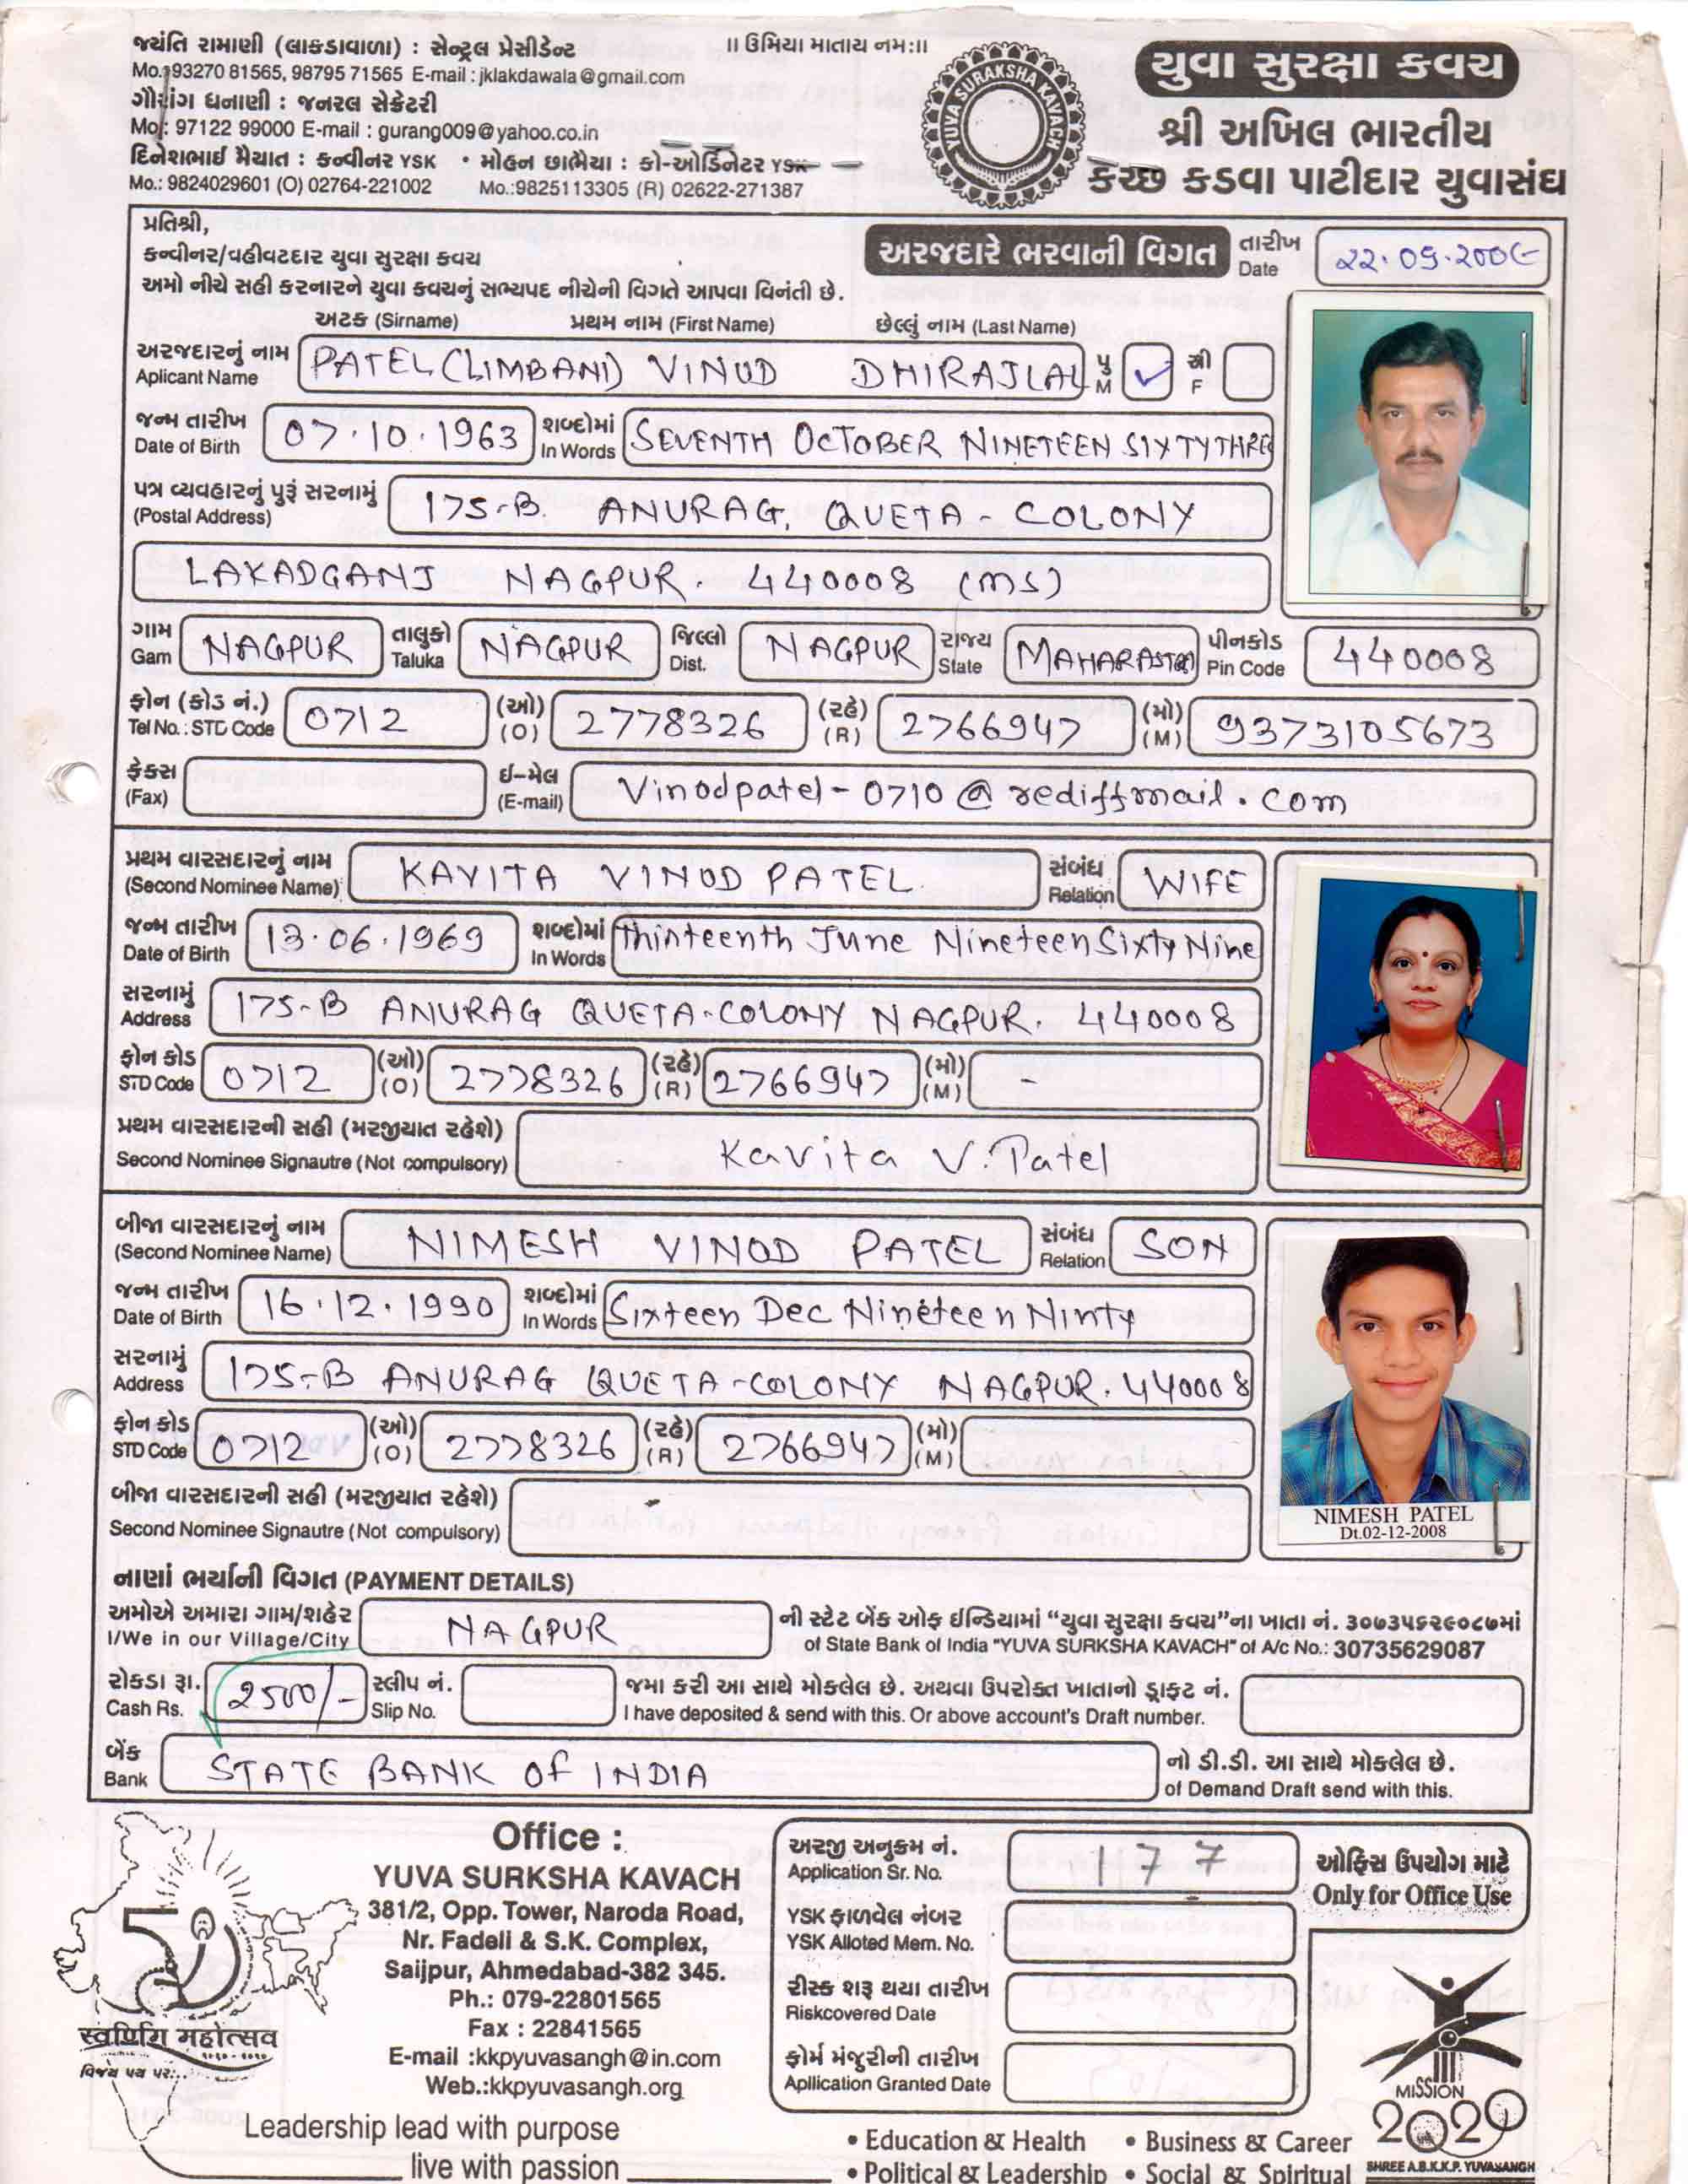 જયંતિ રામાણી (લાકડાવાળા) : સેન્ટ્રલ પ્રેસીડેન્ટ
Mo.:93270 81565, 98795 71565 E-mail : jklakdawala@gmail.com
ગૌરાંગ ધનાણી : જનરલ સેક્રેટરી
Mo.: 97122 99000 E-mail : gurang009@yahoo.co.in
દિનેશભાઈ મૈયાત : કન્વીનર YSK • મોહન છાભૈયા : કો-ઓર્ડિનેટર YSK
Mo.: 9824029601 (O) 02764-221002 Mo.:9825113305 (R) 02622-271387
॥ ઉમિયા માતાય નમ:॥
YUVA SURAKSHA KAVACH
યુવા સુરક્ષા કવચ
શ્રી અખિલ ભારતીય
કચ્છ કડવા પાટીદાર યુવાસંઘ
પ્રતિશ્રી,
કન્વીનર/વહીવટદાર યુવા સુરક્ષા કવચ
અમો નીચે સહી કરનારને યુવા કવચનું સભ્યપદ નીચેની વિગતે આપવા વિનંતી છે.
અરજદારે ભરવાની વિગત
તારીખ
Date 22.09.200
અટક (Sirname) પ્રથમ નામ (First Name) છેલ્લું નામ (Last Name)
અરજદારનું નામ
Aplicant Name PATEL (LIMBANI) VINOD DHIRAJLAL પુ M ✓ સ્ત્રી F
જન્મ તારીખ
Date of Birth 07.10.1963 શબ્દોમાં In Words SEVENTH OCTOBER NINETEEN SIXTYTHREE
પત્ર વ્યવહારનું પુરૂં સરનામું
(Postal Address) 175-B. ANURAG, QUETA - COLONY
LAKADGANJ NAGPUR. 440008 (MS)
ગામ Gam NAGPUR તાલુકો Taluka NAGPUR જિલ્લો Dist. NAGPUR રાજ્ય State MAHARASTRA પીનકોડ Pin Code 440008
ફોન (કોડ નં.)
Tel No. : STD Code 0712 (ઓ) (O) 2778326 (રહે) (R) 2766947 (મો) (M) 9373105673
ફેક્સ (Fax) ઈ-મેલ (E-mail) Vinodpatel-0710@rediffmail.com
પ્રથમ વારસદારનું નામ
(Second Nominee Name) KAVITA VINOD PATEL સંબંધ Relation WIFE
જન્મ તારીખ
Date of Birth 13.06.1969 શબ્દોમાં In Words Thinteenth June Nineteen Sixty Nine
સરનામું
Address 175-B ANURAG QUETA-COLONY NAGPUR. 440008
ફોન કોડ
STD Code 0712 (ઓ) (O) 2778326 (રહે) (R) 2766947 (મો) (M) -
પ્રથમ વારસદારની સહી (મરજીયાત રહેશે)
Second Nominee Signautre (Not compulsory) Kavita V. Patel
બીજા વારસદારનું નામ
(Second Nominee Name) NIMESH VINOD PATEL સંબંધ Relation SON
જન્મ તારીખ
Date of Birth 16.12.1990 શબ્દોમાં In Words Sixteen Dec Nineteen Ninty
સરનામું
Address 175-B ANURAG QUETA-COLONY NAGPUR. 440008
ફોન કોડ
STD Code 0712 (ઓ) (O) 2778326 (રહે) (R) 2766947 (મો) (M)
બીજા વારસદારની સહી (મરજીયાત રહેશે)
Second Nominee Signautre (Not compulsory)
NIMESH PATEL
Dt.02-12-2008
નાણાં ભર્યાની વિગત (PAYMENT DETAILS)
અમોએ અમારા ગામ/શહેર NAGPUR ની સ્ટેટ બેંક ઓફ ઈન્ડિયામાં “યુવા સુરક્ષા કવચ”ના ખાતા નં. ૩૦૭૩૫૬૨૯૦૮૭માં
I/We in our Village/City of State Bank of India "YUVA SURKSHA KAVACH" of A/c No.: 30735629087
રોકડા રૂા. 2500/- સ્લીપ નં. જમા કરી આ સાથે મોકલેલ છે. અથવા ઉપરોક્ત ખાતાનો ડ્રાફ્ટ નં.
Cash Rs. Slip No. I have deposited & send with this. Or above account's Draft number.
બેંક STATE BANK OF INDIA નો ડી.ડી. આ સાથે મોકલેલ છે.
Bank of Demand Draft send with this.
Office :
YUVA SURKSHA KAVACH
381/2, Opp. Tower, Naroda Road,
Nr. Fadeli & S.K. Complex,
Saijpur, Ahmedabad-382 345.
Ph.: 079-22801565
Fax : 22841565
E-mail :kkpyuvasangh@in.com
Web.:kkpyuvasangh.org
50
महोत्सव
વિજય પથ પર...
Leadership lead with purpose
live with passion
અરજી અનુક્રમ નં.
Application Sr. No. 177
YSK ફાળવેલ નંબર
YSK Alloted Mem. No.
રીસ્ક શરૂ થયા તારીખ
Riskcovered Date
ફોર્મ મંજુરીની તારીખ
Apllication Granted Date
ઓફિસ ઉપયોગ માટે
Only for Office Use
MISSION
2020
SHREE A.B.K.K.P. YUVASANGH
• Education & Health • Business & Career
• Political & Leadership • Social & Spiritual